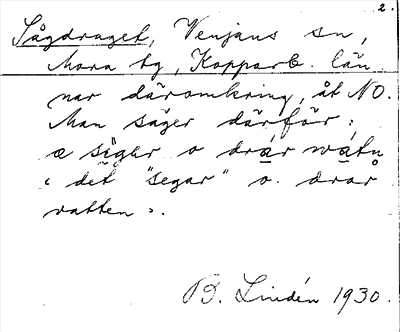 2.
Sågdraget, Venjans sn,
Mora tg, Kopparb. län
nar däromkring, åt NO.
Man säger därför:
æ sigır o drar watn
‹ det "segar" o. drar
vatten ›.
B. Lindén 1930.